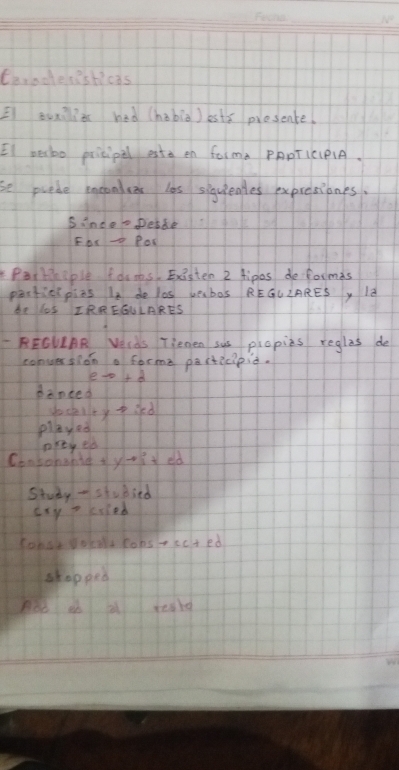 Fecha
Características
El auxiliar had (había) está presente.
El verbo pricipal esta en forma PARTICIPIA.
Se puede encontrar los siguientes expresiones.
Since → Desde
For → Por
Participle forms. Existen 2 tipos de formas
participias la de los verbos REGULARES y la
de los IRREGULARES
- REGULAR Verbs Tienen sus propias reglas de
conversión a forma participia.
e → + d
danced
vocal + y → ied
played
preyed
Consonante + y → i + ed
Study → studied
Cry → cried
Cons + Vocal + Cons → cc + ed
stopped
Add ed al resto